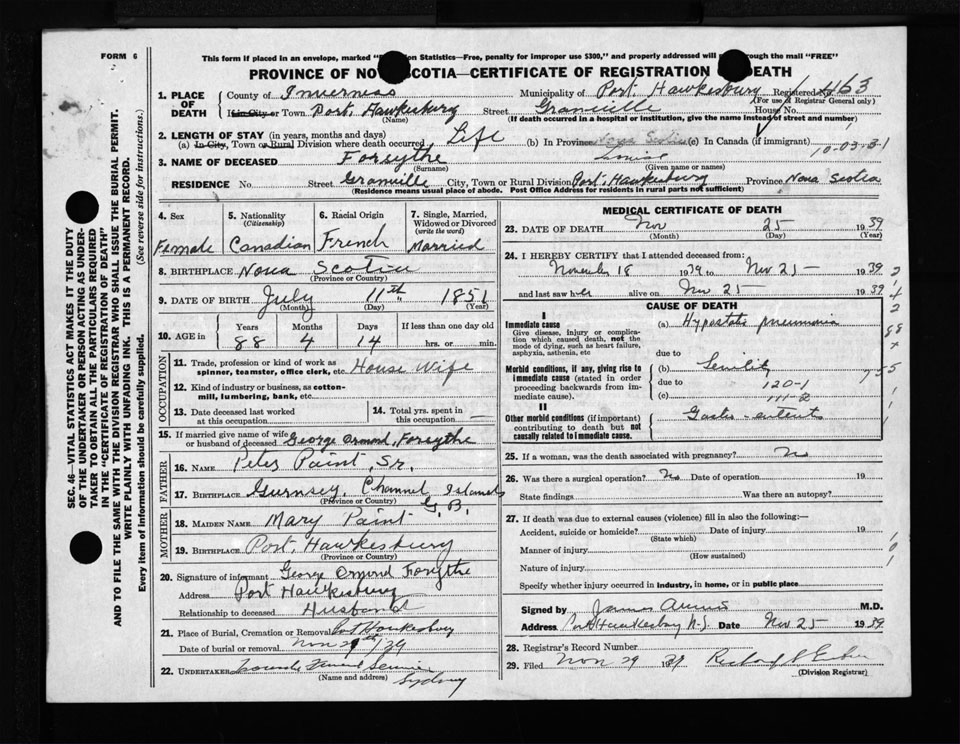 FORM 6
This form if placed in an envelope, marked "  ion Statistics—Free, penalty for improper use $300," and properly addressed will   through the mail "FREE"
PROVINCE OF NO  SCOTIA—CERTIFICATE OF REGISTRATION   DEATH
1. PLACE OF DEATH County of Inverness Municipality of Port Hawkesbury Registered No. 463
(For use of Registrar General only)
If in City or Town Port Hawkesbury Street Granville House No.
(Name) (If death occurred in a hospital or institution, give the name instead of street and number)
2. LENGTH OF STAY (in years, months and days)
(a) In City, Town or Rural Division where death occurred Life (b) In Province Nova Scotia (c) In Canada (if immigrant)
10-03-3-1
3. NAME OF DECEASED Forsythe Louise
(Surname) (Given name or names)
RESIDENCE No. Street Granville City, Town or Rural Division Port Hawkesbury Province Nova Scotia
(Residence means usual place of abode. Post Office Address for residents in rural parts not sufficient)
SEC. 46—VITAL STATISTICS ACT MAKES IT THE DUTY
OF THE UNDERTAKER OR PERSON ACTING AS UNDER-
TAKER TO OBTAIN ALL THE PARTICULARS REQUIRED
IN THE "CERTIFICATE OF REGISTRATION OF DEATH"
AND TO FILE THE SAME WITH THE DIVISION REGISTRAR WHO SHALL ISSUE THE BURIAL PERMIT.
WRITE PLAINLY WITH UNFADING INK. THIS IS A PERMANENT RECORD.
Every item of Information should be carefully supplied. (See reverse side for instructions.)
4. Sex Female
5. Nationality (Citizenship) Canadian
6. Racial Origin French
7. Single, Married, Widowed or Divorced (write the word) Married
8. BIRTHPLACE Nova Scotia
(Province or Country)
9. DATE OF BIRTH July 11th 1851
(Month) (Day) (Year)
10. AGE in Years 88 Months 4 Days 14 If less than one day old hrs. or min.
OCCUPATION
11. Trade, profession or kind of work as spinner, teamster, office clerk, etc. House Wife
12. Kind of industry or business, as cotton-mill, lumbering, bank, etc.
13. Date deceased last worked at this occupation
14. Total yrs. spent in this occupation —
15. If married give name of wife or husband of deceased George Ormond Forsythe
FATHER
16. NAME Peter Paint, Sr.
17. BIRTHPLACE Guernsey, Channel Islands G.B.
(Province or Country)
MOTHER
18. MAIDEN NAME Mary Paint
19. BIRTHPLACE Port Hawkesbury
(Province or Country)
20. Signature of informant George Ormond Forsythe
Address Port Hawkesbury
Relationship to deceased Husband
21. Place of Burial, Cremation or Removal Port Hawkesbury
Date of burial or removal Nov 29th/39
22. UNDERTAKER Funeral Service
(Name and address) Sydney
MEDICAL CERTIFICATE OF DEATH
23. DATE OF DEATH Nov 25 1939
(Month) (Day) (Year)
24. I HEREBY CERTIFY that I attended deceased from:
November 18 1939 to Nov 25— 1939
and last saw her alive on Nov 25— 1939
CAUSE OF DEATH
I
Immediate cause
Give disease, injury or complication which caused death, not the mode of dying, such as heart failure, asphyxia, asthenia, etc
(a) Hypostatic pneumonia
due to
Morbid conditions, if any, giving rise to immediate cause (stated in order proceeding backwards from immediate cause).
(b) Senility
due to 120-1
(c) 111-2
II
Other morbid conditions (if important) contributing to death but not causally related to immediate cause.
Gastro-enterit
25. If a woman, was the death associated with pregnancy? No
26. Was there a surgical operation? No Date of operation 19
State findings Was there an autopsy?
27. If death was due to external causes (violence) fill in also the following:—
Accident, suicide or homicide? Date of injury 19
(State which)
Manner of injury
(How sustained)
Nature of injury
Specify whether injury occurred in industry, in home, or in public place
Signed by James M.D.
Address Port Hawkesbury N.S. Date Nov 25 1939
28. Registrar's Record Number
29. Filed Nov 29 1939
(Division Registrar)